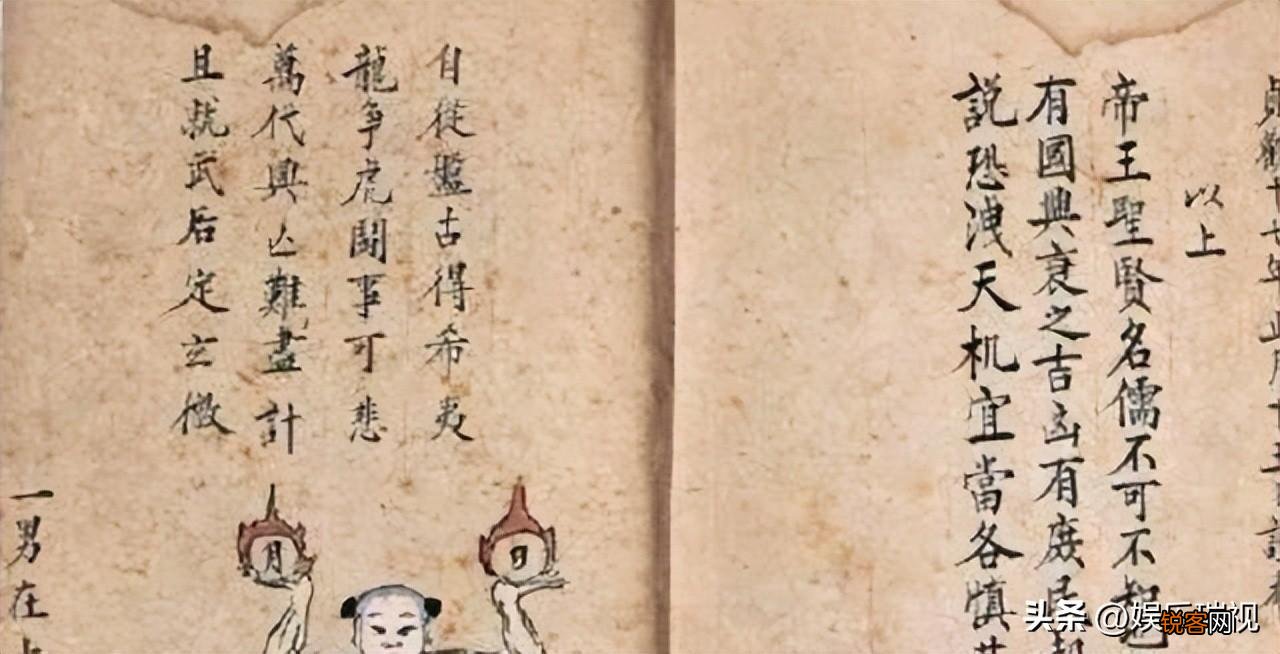 貞觀十七年
以上
帝王聖賢名儒不可不知也
有國興衰之吉凶有庶民
説恐洩天机宜當各慎其
自從盤古得希夷
龍争虎鬪事可悲
萬代興亾難盡計
且就武后定玄微
月
日
一男在
头条 @娱乐瑞视
锐客网